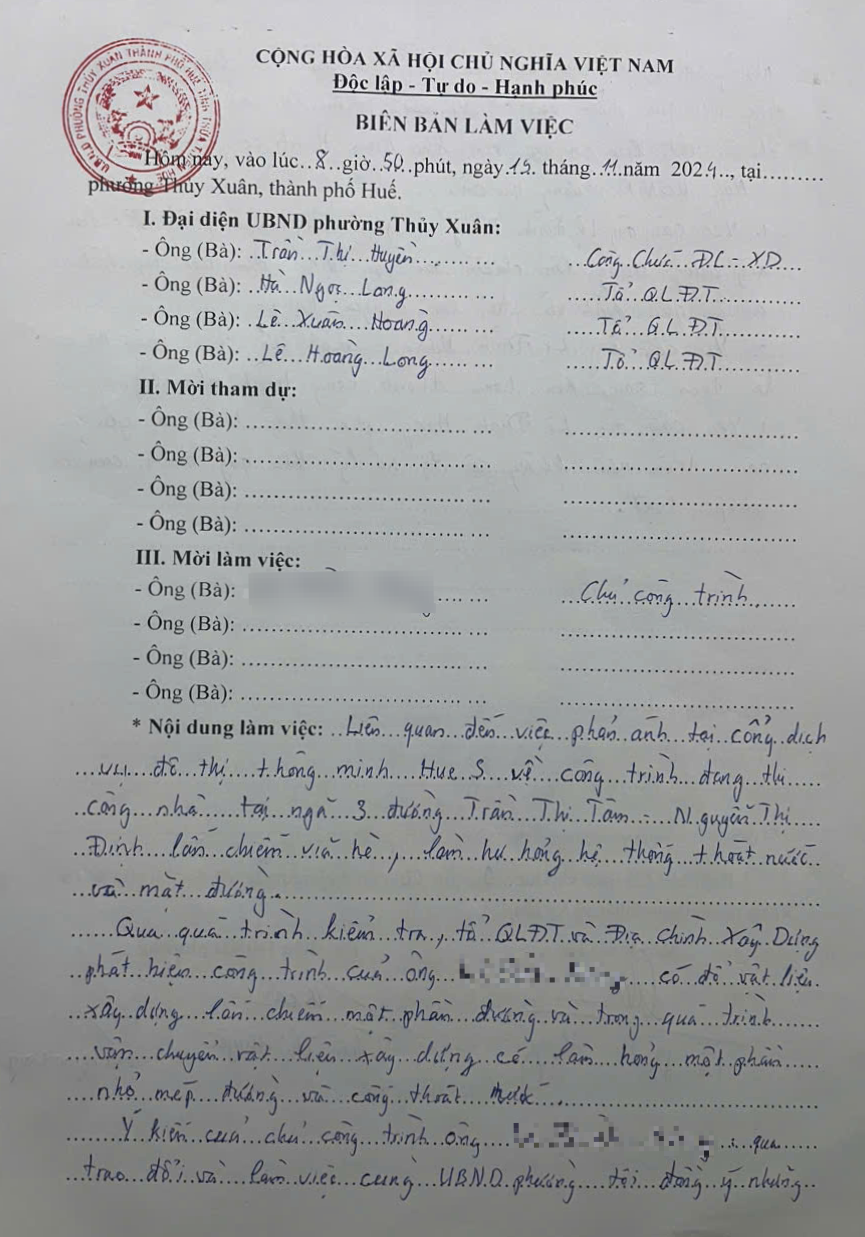 CỘNG HÒA XÃ HỘI CHỦ NGHĨA VIỆT NAM
Độc lập - Tự do - Hạnh phúc
BIÊN BẢN LÀM VIỆC
U.B.N.D PHƯỜNG THỦY XUÂN THÀNH PHỐ HUẾ TỈNH THỪA
Hôm nay, vào lúc..8..giờ..50..phút, ngày.15. tháng..11.năm 2024.., tại.........
phường Thủy Xuân, thành phố Huế.
I. Đại diện UBND phường Thủy Xuân:
- Ông (Bà): ..Trần...Thị...Huyền........ ... ...Công..Chức...ĐC.-..XD....
- Ông (Bà): ..Hà...Ngọc...Long............ ... ......Tổ..QLĐT..............
- Ông (Bà): ..Lê...Xuân...Hoàng........ ... ......Tổ..QLĐT..............
- Ông (Bà): ..Lê...Hoàng...Long........ ... ......Tổ..QLĐT..............
II. Mời tham dự:
- Ông (Bà): .................................... ... ........................................
- Ông (Bà): .................................... ... ........................................
- Ông (Bà): .................................... ... ........................................
- Ông (Bà): .................................... ... ........................................
III. Mời làm việc:
- Ông (Bà): .... ... ...Chủ..công...trình.......
- Ông (Bà): .................................... ... ........................................
- Ông (Bà): .................................... ... ........................................
- Ông (Bà): .................................... ... ........................................
* Nội dung làm việc: ..Liên..quan...đến...việc...phản..ánh...tại..cổng..dịch
...vụ...đô..thị...thông..minh...Hue S..về...công...trình..đang..thi.....
..công...nhà....tại..ngã..3..đường...Trần...Thị..Tâm..-..Nguyễn..Thị.....
..Định...lấn..chiếm..vỉa..hè.., ..làm..hư..hỏng..hệ..thống..thoát..nước..
...và...mặt...đường..................................................
......Qua..quá..trình..kiểm..tra.., tổ..QLĐT..và..Địa..chính..Xây..Dựng
..phát..hiện..công..trình..của..ông.. ....có..để..vật..liệu
..xây..dựng...lấn..chiếm..một..phần..đường..và..trong..quá..trình.....
...vận..chuyển..vật..liệu..xây..dựng..có...làm..hỏng..một..phần.....
...nhỏ..mép...đường..và..cống..thoát..nước.............................
......Ý kiến..của..chủ..công..trình..ông.. ..: qua......
..trao..đổi..và...làm..việc..cùng..UBND..phường....tôi..đồng..ý..những..